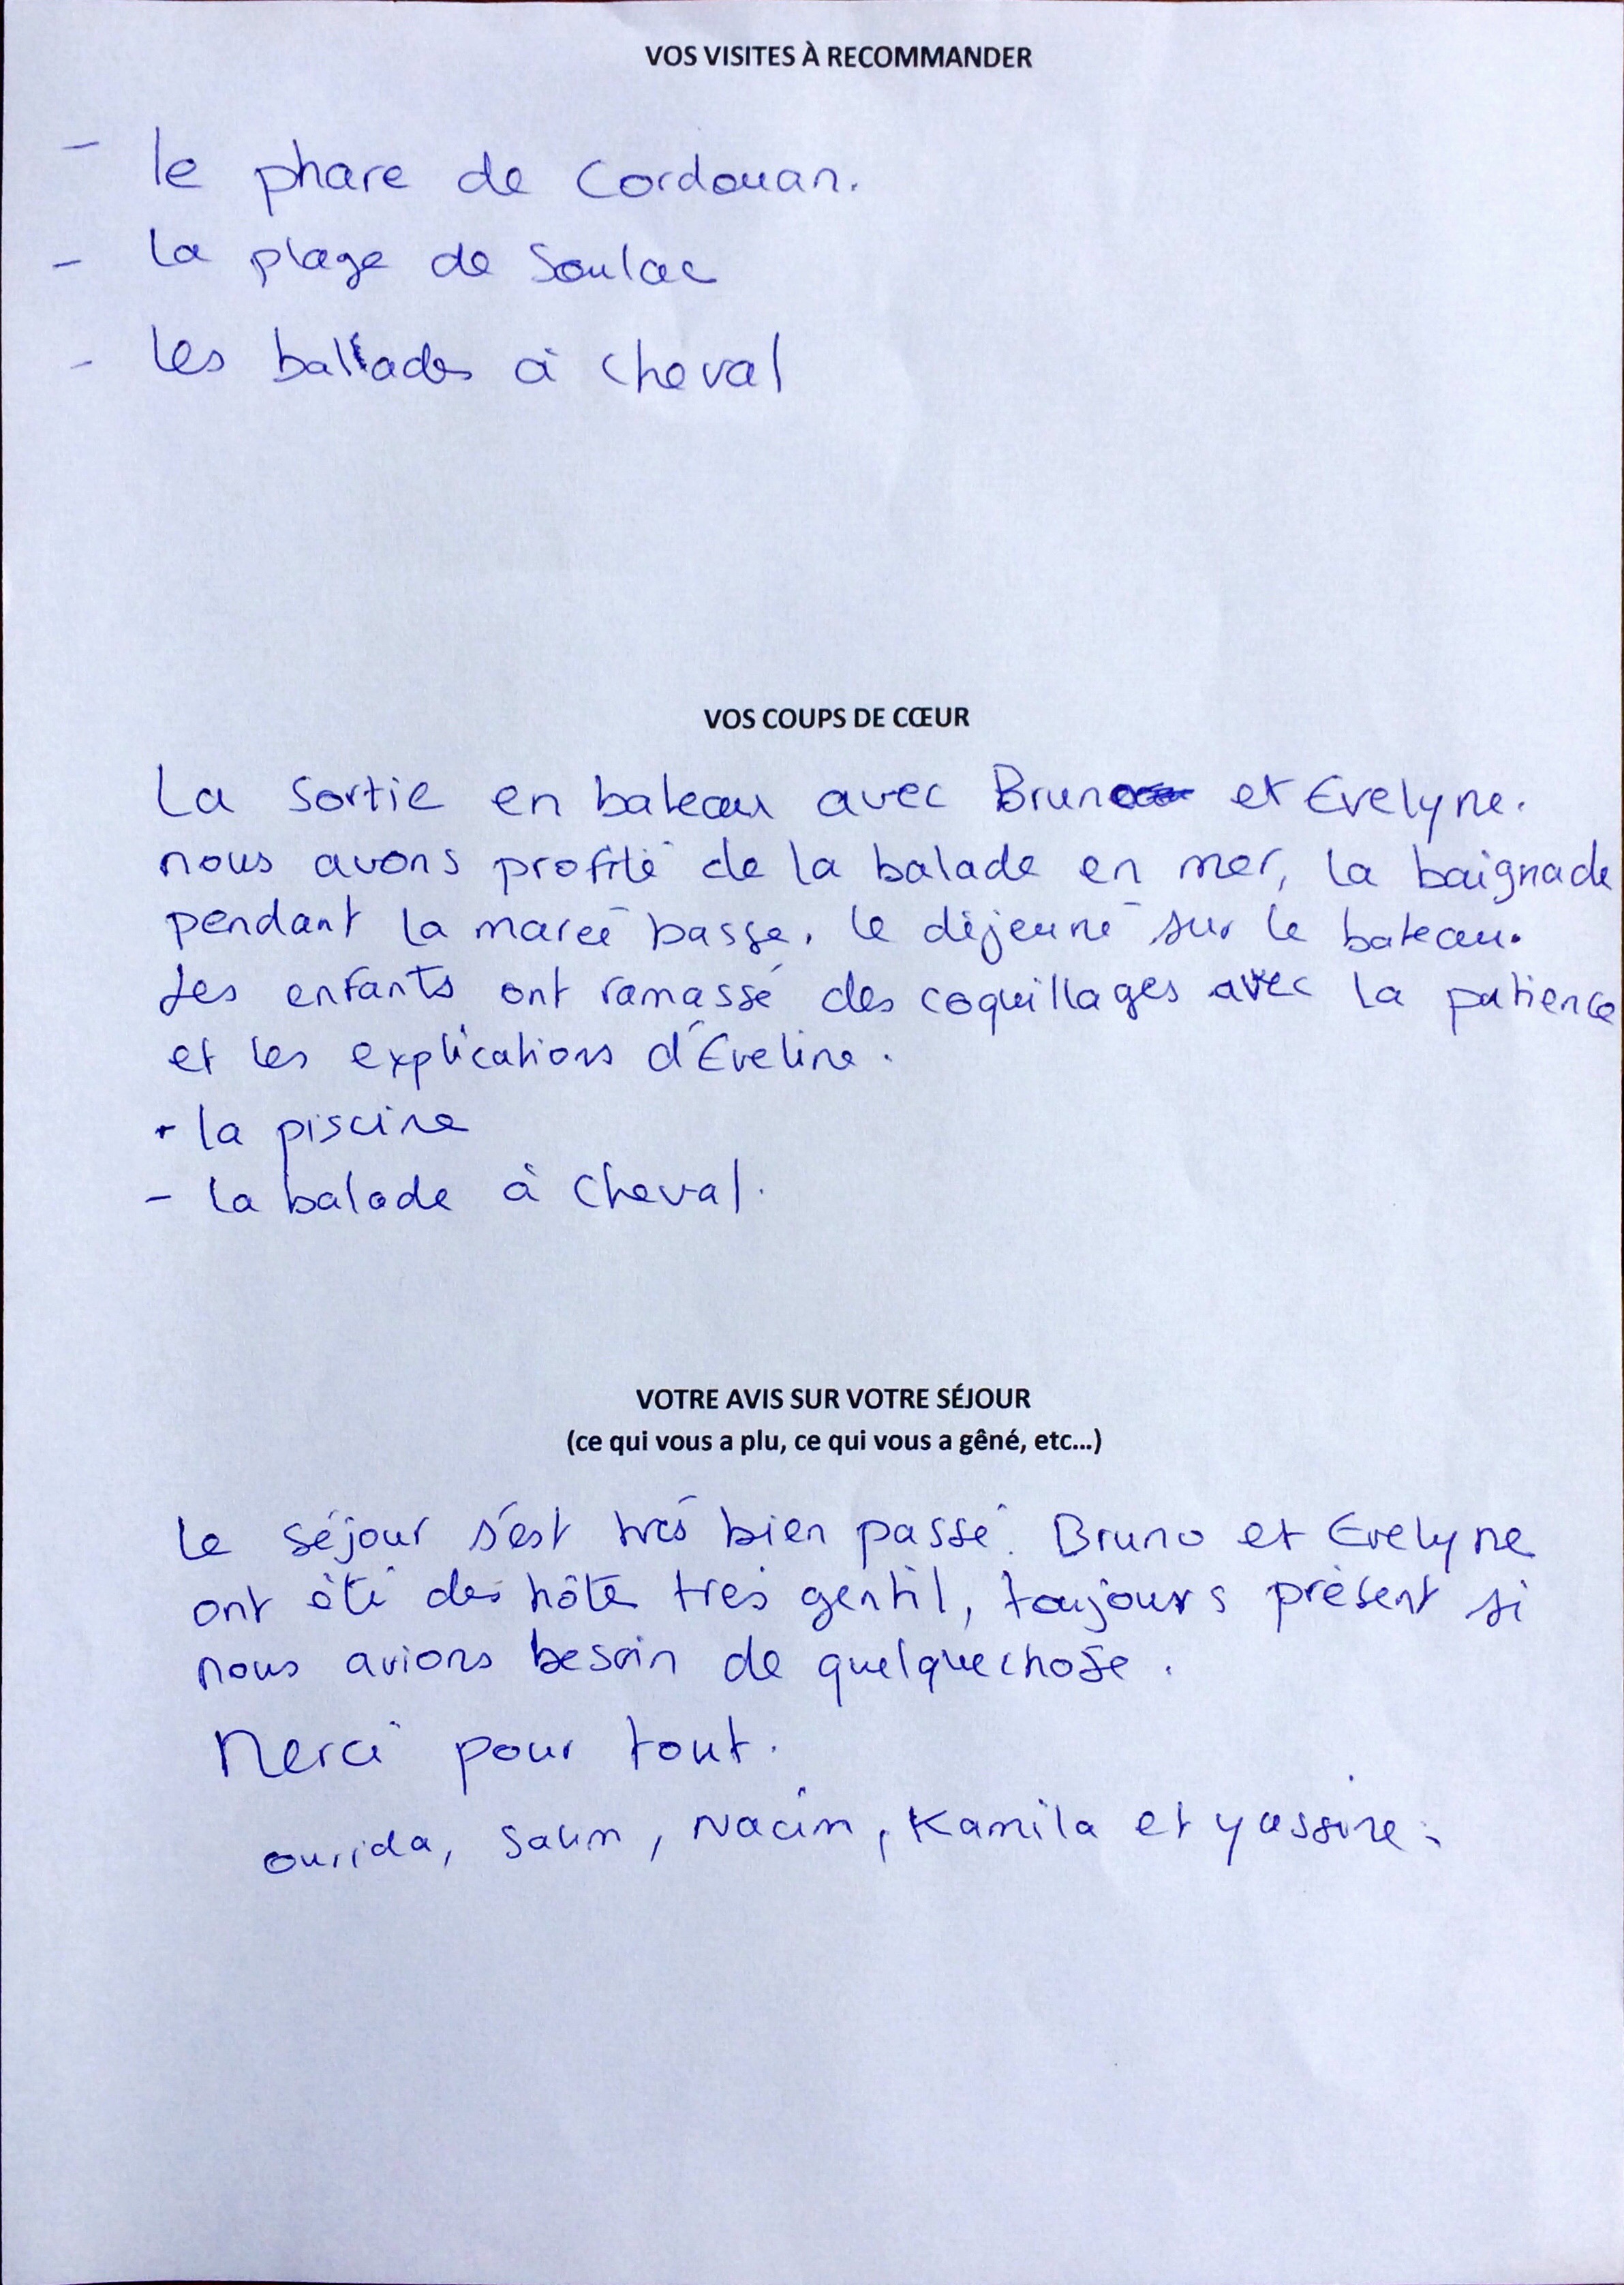 VOS VISITES À RECOMMANDER
- le phare de Cordouan.
- la plage de Soulac
- les ballades à cheval
VOS COUPS DE CŒUR
La sortie en bateau avec Bruno et Evelyne.
nous avons profité de la balade en mer, la baignade
pendant la mareé basse, le déjeuné sur le bateau.
Les enfants ont ramassé des coquillages avec la patience
et les explications d'Eveline.
- la piscine
- la balade à cheval.
VOTRE AVIS SUR VOTRE SÉJOUR
(ce qui vous a plu, ce qui vous a gêné, etc...)
Le séjour s'est trés bien passé. Bruno et Evelyne
ont été des hôte tres gentil, toujours présent si
nous avions besoin de quelquechose.
Merci pour tout.
ourida, Salim, Nacim, Kamila et yassine.